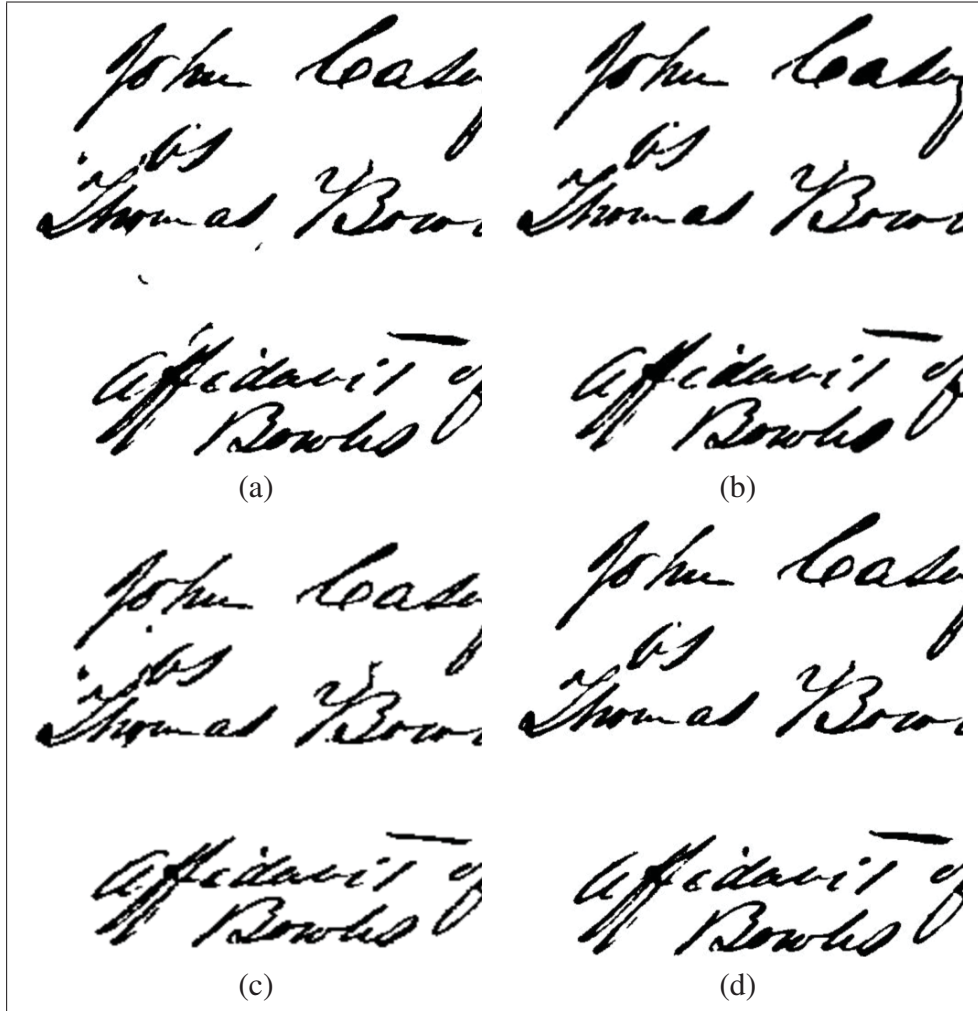 John Casey
vs
Thomas Bow
Affidavit of
Bowles
(a)
John Casey
vs
Thomas Bow
Affidavit of
Bowles
(b)
John Casey
vs
Thomas Bow
Affidavit of
Bowles
(c)
John Casey
vs
Thomas Bow
Affidavit of
Bowles
(d)